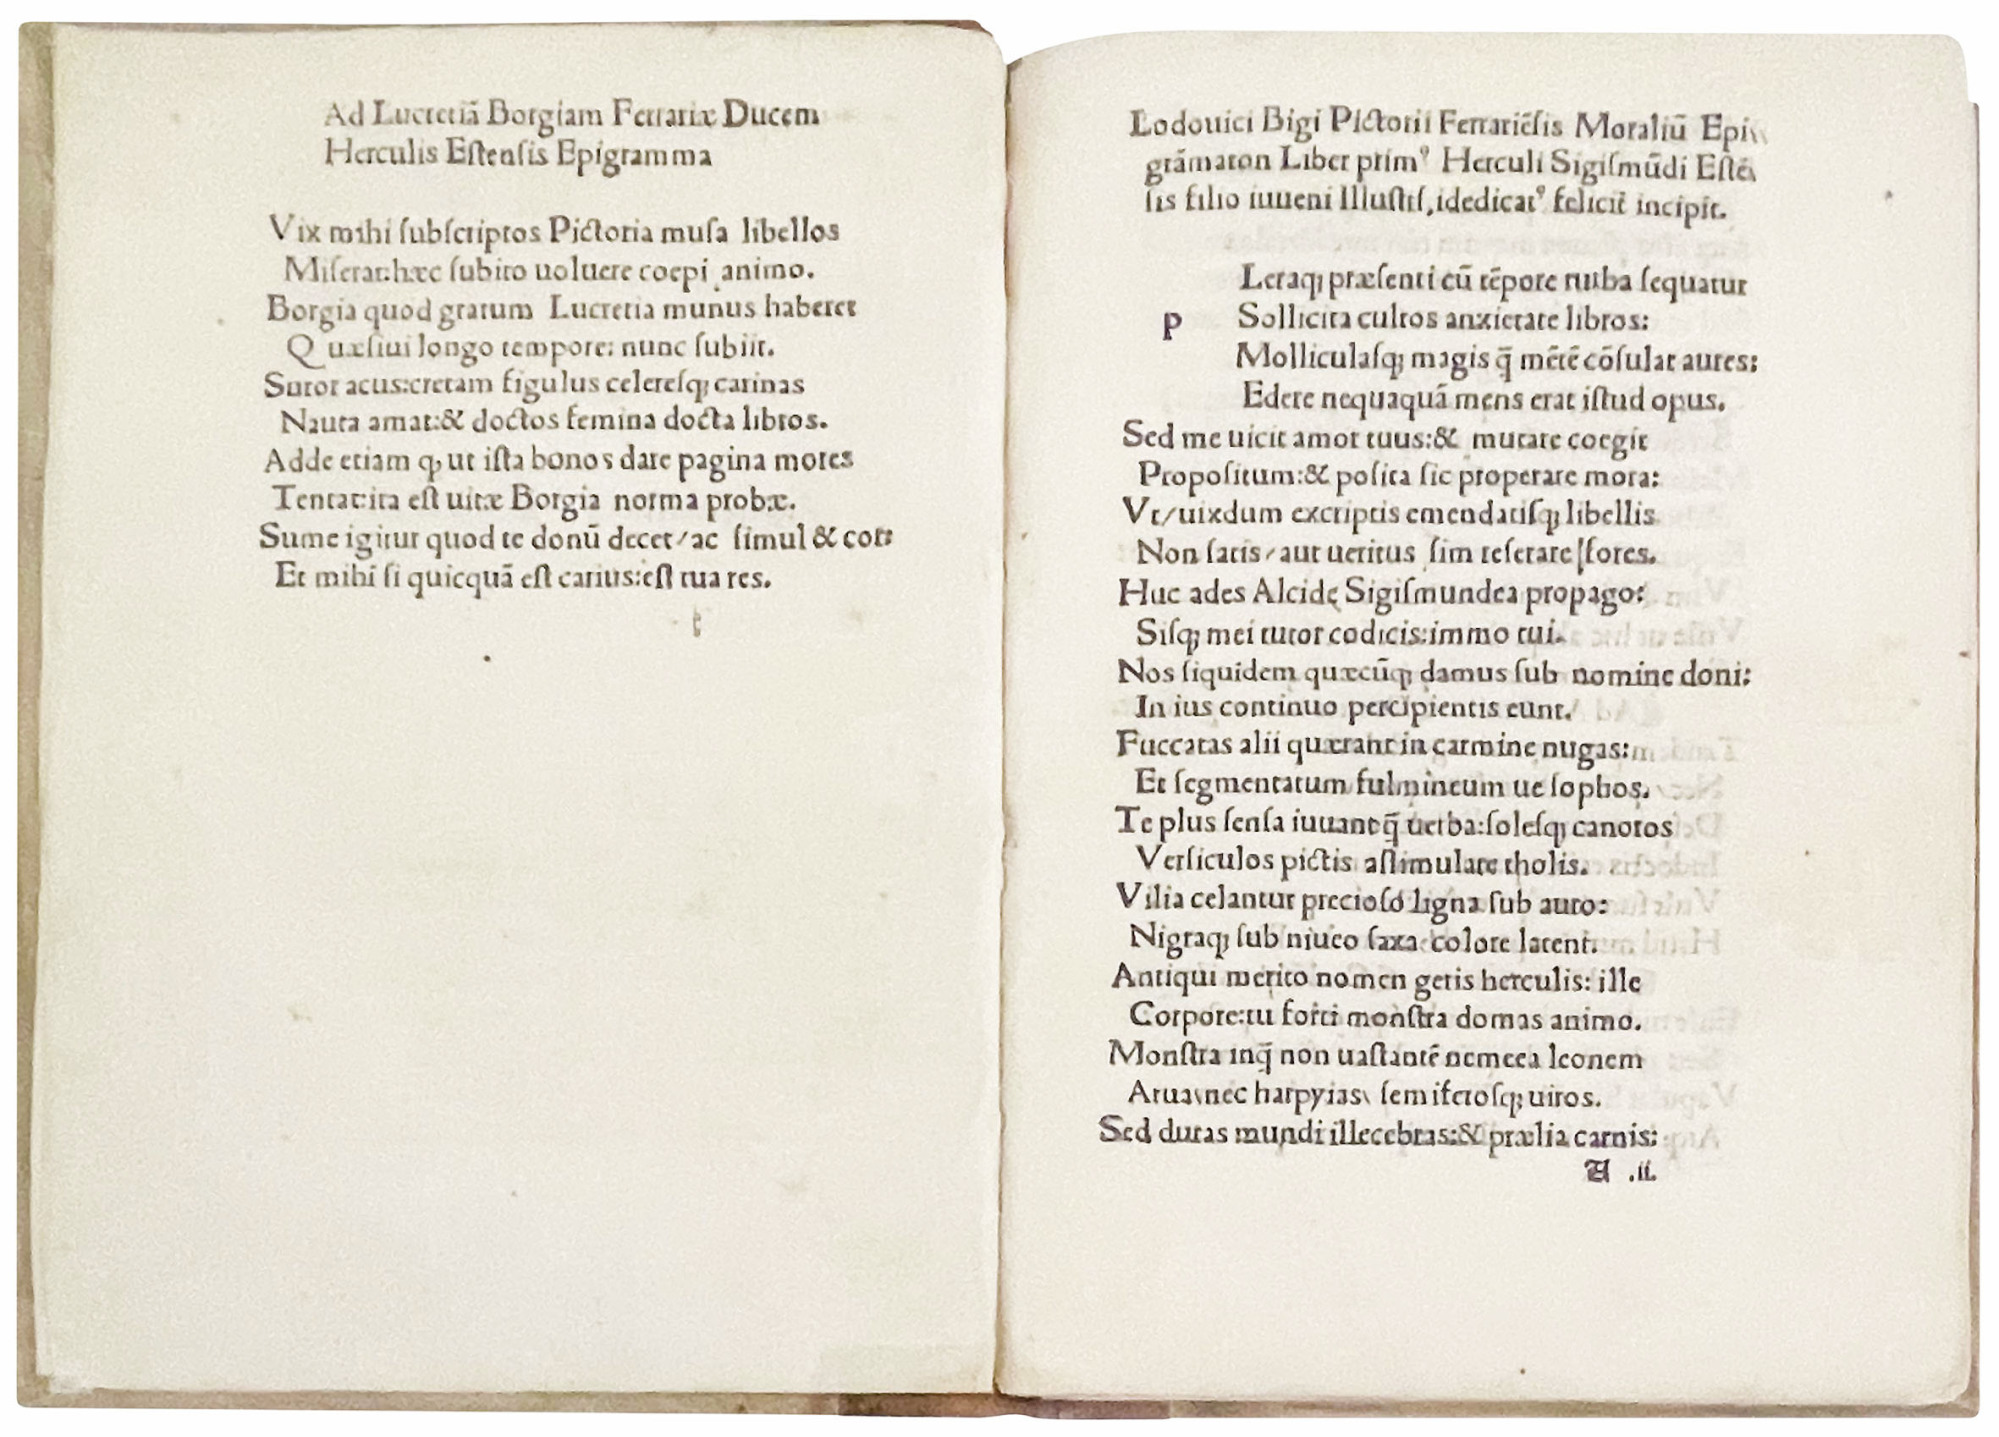 Ad Lucretiā Borgiam Ferrariæ Ducem
Herculis Eſtenſis Epigramma
Vix mihi ſubſcriptos Pictoria muſa libellos
Miſerat:hæc ſubito uoluere coepi animo.
Borgia quod gratum Lucretia munus haberet
Quæſiui longo tempore: nunc ſubiit.
Sutor acus:cretam figulus celereſqꝫ carinas
Nauta amat:& doctos femina docta libros.
Adde etiam ꝙ ut iſta bonos dare pagina mores
Tentat:ita eſt uitæ Borgia norma probæ.
Sume igitur quod te donū decet/ac ſimul & cor:
Et mihi ſi quicquā eſt carius:eſt tua res.
Lodouici Bigi Pictorii Ferrariēſis Moraliū Epi
grāmaton Liber primꝰ Herculi Sigiſmūdi Eſtē
ſis filio iuueni Illuſtriſ.idedicatꝰ feliciť incipit.
Letaqꝫ præſenti cū tēpore turba ſequatur
p Sollicita cultos anxietate libros:
Molliculaſqꝫ magis q̄ mētē cōſulat aures:
Edere nequaquā mens erat iſtud opus.
Sed me uicit amor tuus:& mutare coegit
Propoſitum:& poſita ſic properare mora:
Vt/uixdum exctiptis emendatiſqꝫ libellis
Non ſatis/aut ueritus ſim reſerare fores.
Huc ades Alcidę Sigiſmundea propago:
Siſqꝫ mei tutor codicis:immo tui.
Nos ſiquidem quæcūqꝫ damus ſub nomine doni:
In ius continuo percipientis eunt.
Fuccatas alii quærant in carmine nugas:
Et ſegmentatum fulmineum ue ſophos.
Te plus ſenſa iuuant q̄ uerba:ſoleſqꝫ canoros
Verſiculos pictis aſtimulare tholis.
Vilia celantur precioſo ligna ſub auro:
Nigraqꝫ ſub niueo ſaxa colore latent.
Antiqui merito nomen geris herculis: ille
Corpore:tu forti monſtra domas animo.
Monſtra inq̄ non uaſtantē nemeea leonem
Arua:nec harpyias\ ſemiferoſqꝫ uiros.
Sed duras mundi illecebras:& prælia carnis:
A .ii.